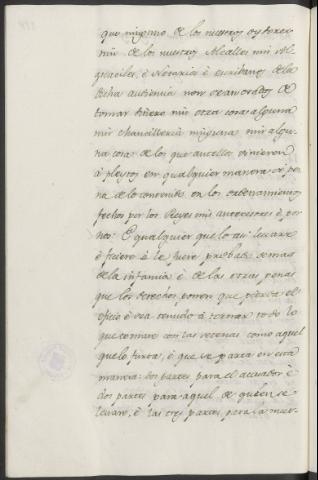 que ninguno de los nuestros oydores
nin de los nuestros Alcalles nin Al-
guaciles, è Notarios è escribanos de la
dicha audiencia non sean osados de
tomar dinero nin otra cosa alguna
nin chancilleria ninguna nin algu-
na cosa de los que ante ellos vinieren
à pleytos en qualquier manera só pe-
na de lo contenido en los ordenamientos
fechos por los Reyes mis antecesores è por
nos: E qualquier que lo asi levare
è ficiere è le fuere probado demas
de la infamia è de las otras penas
que los derechos ponen que pierda el
oficio è sea tenudo à tornar todo lo
que tomare con las setenas como aquel
que lo furta, è que se parta en esta
manera: dos partes para el acusador è
dos partes para aquel de quien se
levare, è las tres partes para la nues-